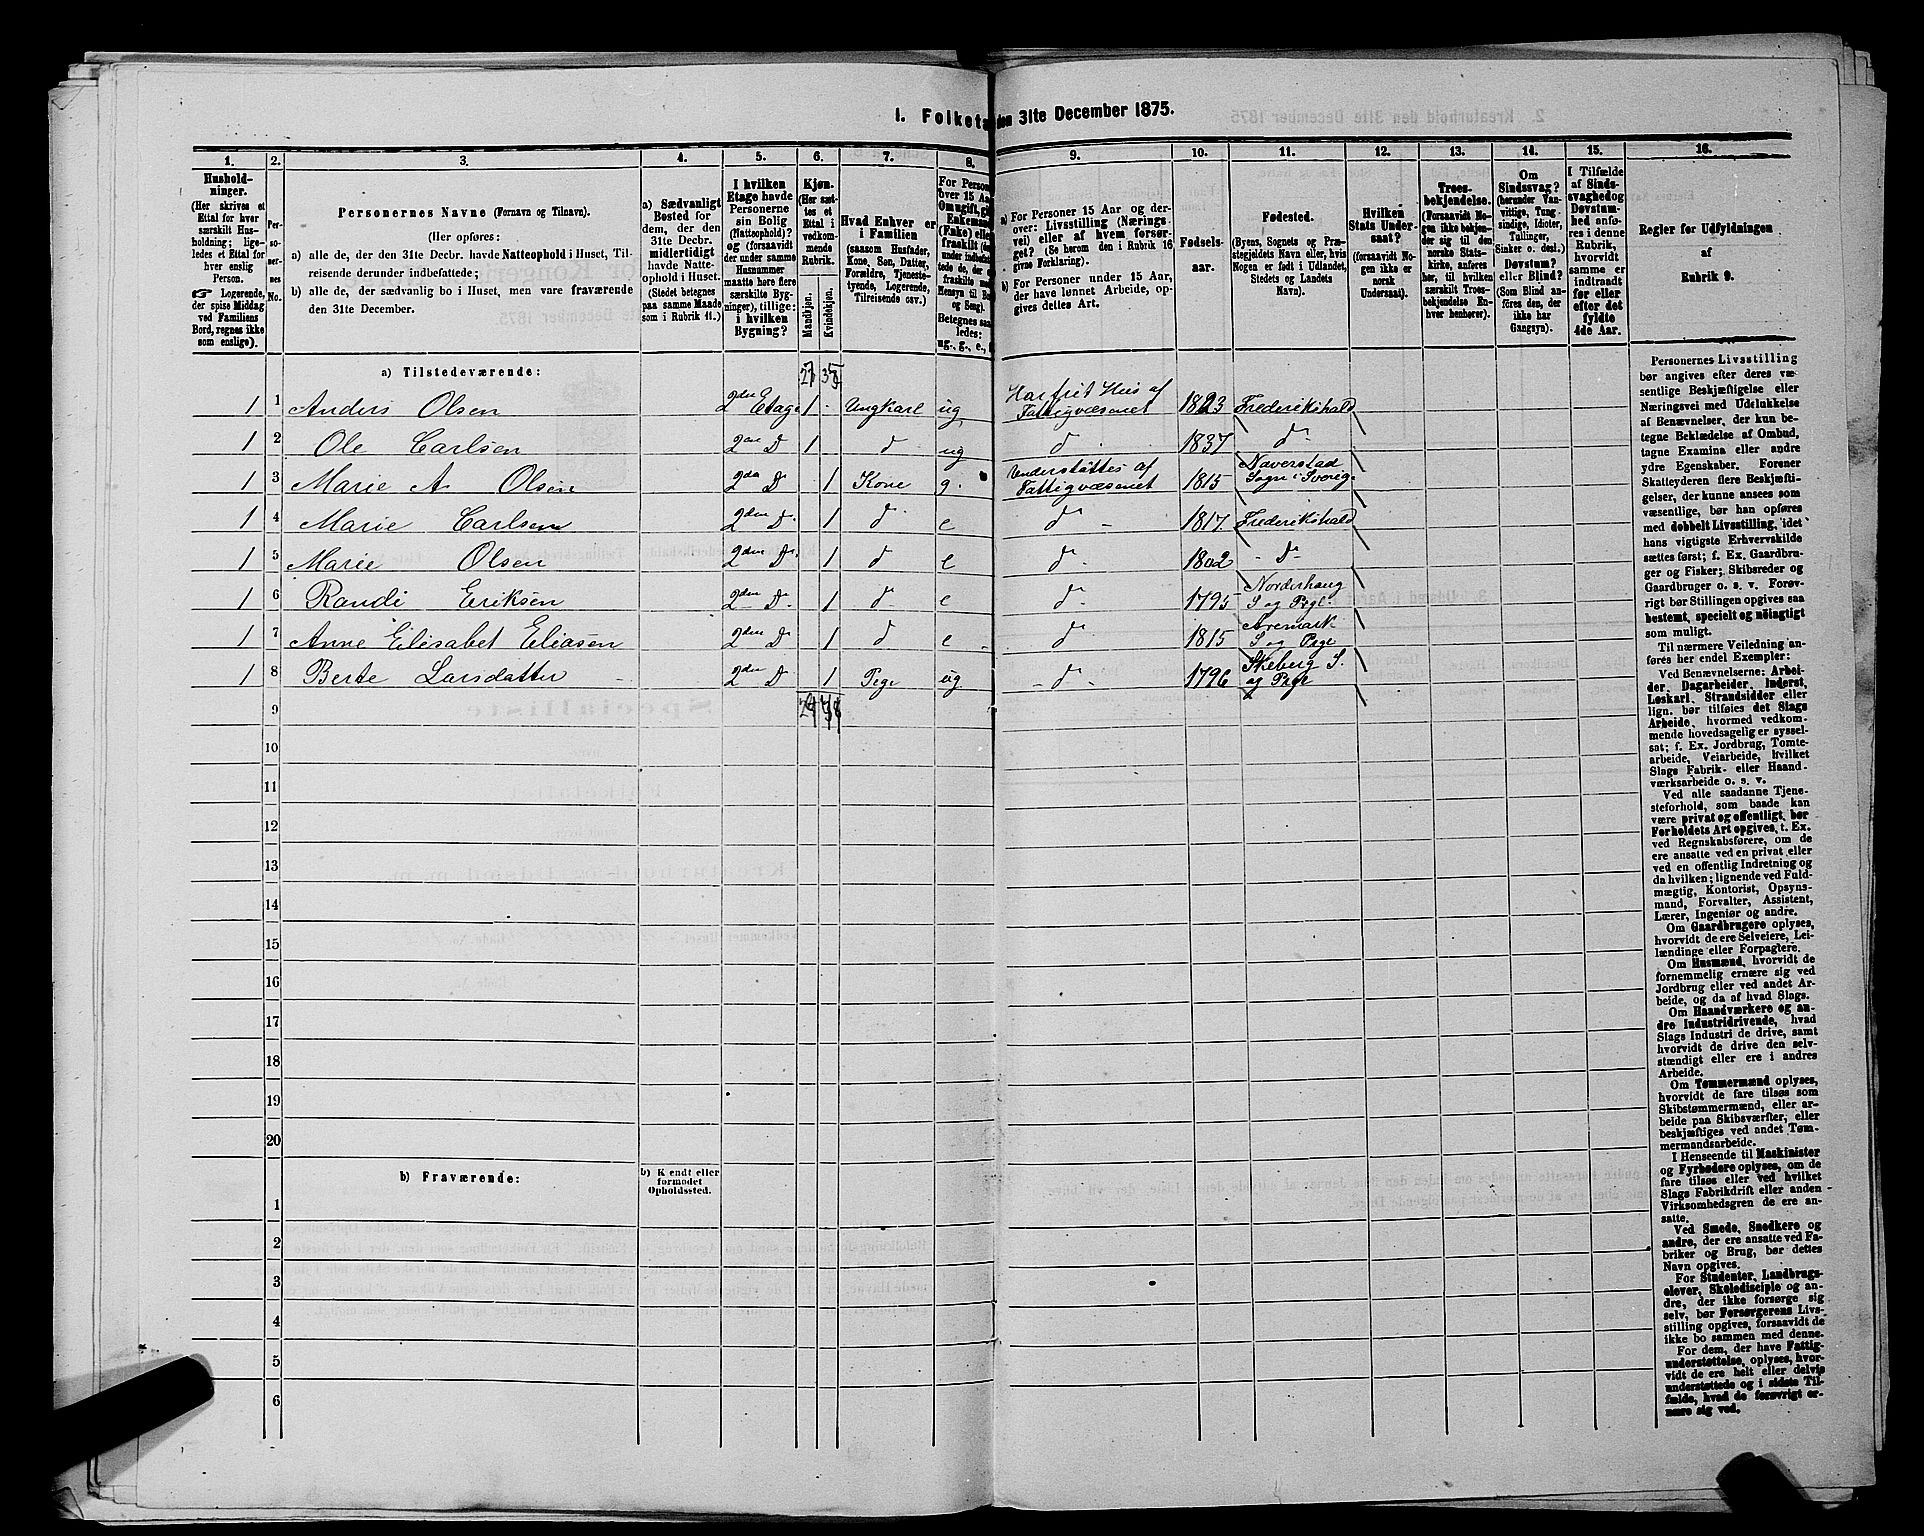 1. Folketæ den 31te December 1875.
1. 2. 3. 4. 5. 6. 7. 8. 9. 10. 11. 12. 13. 14. 15. 16.
Hushold-
ninger.
(Her skrives et
Ettal for hver
særskilt Hus-
holdning; lige-
ledes et Ettal for
hver enslig
Person.
☞ Logerende,
der spise Middag
ved Familiens
Bord, regnes ikke
som enslige).
Per-
so-
ner-
nes
No.
Personernes Navne (Fornavn og Tilnavn).
(Her opføres:
a) alle de, der den 31te Decbr. havde Natteophold i Huset, Til-
reisende derunder indbefattede;
b) alle de, der sædvanlig bo i Huset, men vare fraværende
den 31te December.
a) Sædvanligt
Bosted for
dem, der den
31te Decbr.
midlertidigt
havde Natte-
ophold i Huset.
(Stedet betegnes
paa samme Maade
som i Rubrik 11.)
I hvilken
Etage havde
Personerne
sin Bolig
(Natteophold)?
og (forsaavidt
der under samme
Husnummer
maatte høre flere
særskilte Byg-
ninger), tillige:
i hvilken
Bygning?
Kjøn.
(Her sæt-
tes et
Ettal i
vedkom-
mende
Rubrik.
Mandkjøn.
Kvindekjøn.
Hvad Enhver er
i Familien
(saasom Husfader,
Kone, Søn, Datter,
Forældre, Tjeneste-
tyende, Logerende,
Tilreisende osv.)
For Person
over 15 Aar
Om ugift, gift
Enkemand
(Enke) eller
fraskilt (der-
under indbefatte-
tede de, der
fraskilte med
Hensyn til Bo
og Seng).
Betegnes saa-
ledes:
ug., g., e.,
a) For Personer 15 Aar og der-
over: Livsstilling (Nærings-
vei) eller af hvem forsør-
get? (Se herom den i Rubrik 16
givne Forklaring).
b) For Personer under 15 Aar,
der have lønnet Arbeide, op-
gives dettes Art.
Fødsels-
aar.
Fødested.
(Byens, Sognets og Præ-
stegjeldets Navn eller, hvis
Nogen er født i Udlandet,
Stedets og Landets
Navn).
Hvilken
Stats Under-
saat?
(forsaavidt No-
gen ikke er
norsk
Undersaat).
Troes-
bekjendelse.
(Forsaavidt No-
gen ikke bekjen-
der sig til den
norske Stats-
kirke, anføres
her, til hvilken
særskilt Troes-
bekjendelse En-
hver henhører).
Om
Sindssvag?
(herunder Van-
vittige, Tung-
sindige, Idioter,
Tullinger,
Sinker o. desl.).
Døvstum?
eller Blind?
(Som Blind an-
føres den, der
ikke har
Gangsyn).
I Tilfælde
af Sinds-
svaghed og
Døvstum-
hed anfø-
res i denne
Rubrik,
hvorvidt
samme er
indtraadt
før eller
efter det
fyldte
4de Aar.
Regler for Udfyldningen
af
Rubrik 9.
a) Tilstedeværende:
1 1 Anders Olsen 2den Etage 1 Ungkarl ug Har frit Huus af Fattigvæsenet 1823 Frederikshald
1 2 Ole Carlsen 2den D 1 d ug d 1837 d
1 3 Marie A Olsen 2den D 1 Kone g. Understøttes af Fattigvæsenet 1815 Naverstad Sogn i Sverig
1 4 Marie Carlsen 2den D 1 d e d 1817 Frederikshald
1 5 Marie Olsen 2den D 1 d e d 1802 D
1 6 Randi Eriksen 2den D. 1 d e d 1795 Norderhaug S og Pgl.
1 7 Anne Elisabet Eliasen 2den D 1 d e d 1815 Aremark S og Pgl
1 8 Berte Larsdatter 2den D 1 Pige ug d 1796 Skeberg S. og Pgl
9
10
11
12
13
14
15
16
17
18
19
20
b) Fraværende:
b) Kjendt eller
formodet
Opholdssted.
1
2
3
4
5
6
Personernes Livsstilling
bør angives efter deres væ-
sentlige Beskjæftigelse eller
Næringsvei med Udelukkelse
af Benævnelser, der kun be-
tegne Beklædelse af Ombud,
tagne Examina eller andre
ydre Egenskaber. Forener
Skatteyderen flere Beskjæfti-
gelser, der kunne ansees som
væsentlige, bør han opføres
med dobbelt Livsstilling, idet
hans vigtigste Erhvervskilde
sættes først; f. Ex. Gaardbru-
ger og Fisker; Skibsreder og
Gaardbruger o. s. v. Forøv-
rigt bør Stillingen opgives saa
bestemt, specielt og nøiagtigt
som muligt.
Til nærmere Veiledning an-
føres her endel Exempler:
Ved Benævnelserne: Arbei-
der, Dagarbeider, Inderst,
Løskarl, Strandsidder eller
lign. bør tilføies det Slags
Arbeide, hvormed vedkom-
mende hovedsagelig er syssel-
sat; f. Ex. Jordbrug, Tomte-
arbeide, Veiarbeide, hvilket
Slags Fabrik- eller Haand-
værksarbeide o. s. v.
Ved alle saadanne Tjene-
steforhold, som baade kan
være privat og offentligt, bør
Forholdets Art opgives, t. Ex.
ved Regnskabsførere, om de
ere ansatte ved en privat eller
ved en offentlig Indretning og
da hvilken; lignende ved Fuld-
mægtig, Kontorist, Opsyns-
mand, Forvalter, Assistent,
Lærer, Ingeniør og andre.
Om Gaardbrugere oplyses,
hvorvidt de ere Selveiere, Lei-
lændinge eller Forpagtere.
Om Husmænd, hvorvidt de
fornemmelig ernære sig ved
Jordbrug eller ved andet Ar-
beide, og da af hvad Slags.
Om Haandværkere og an-
dre Industridrivende, hvad
Slags Industri de drive, samt
hvorvidt de drive den selv-
stændigt eller ere i andres
Arbeide.
Om Tømmermænd oplyses,
hvorvidt de fare tilsøs som
Skibstømmermænd, eller ar-
beide paa Skibsværfter, eller
beskjæftiges ved andet Tøm-
mermandsarbeide.
I Henseende til Maskinister
og Fyrbødere oplyses, om de
fare tilsøs eller ved hvilket
Slags Fabrikdrift eller anden
Virksomhedsgren de ere an-
satte.
Ved Smede, Snedkere og
andre, der ere ansatte ved Fa-
briker og Brug, bør dettes
Navn opgives.
For Studenter, Landbrugs-
elever, Skoledisciple og an-
dre, der ikke forsørge sig
selv, bør Forsørgerens Livs-
stilling opgives, forsaavidt de
ikke bo sammen med denne.
For dem, der have Fattig-
understøttelse, oplyses, hvor-
vidt de ere helt eller delvis
understøttede og i sidste Til-
fælde, hvad de forøvrigt er-
nære sig ved.